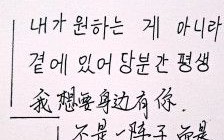 내가 원하는 게 아니라
곁에 있어 당분간 평생
我想要身边有你.
不是一阵子 而是